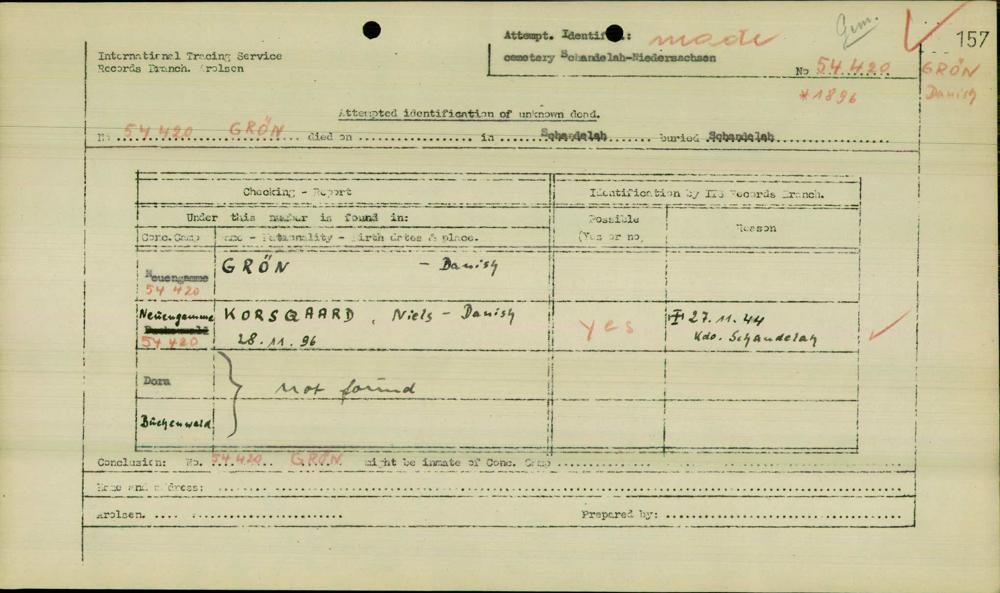 Attempt. Identif.: made Gum.
157
International Tracing Service
cemetery Schandelah-Niedersachsen
Records Branch. Arolsen
No 54.420
GRÖN
*1896
Danish
Attempted identification of unknown dead.
No 54 420 GRÖN died on in Schandelah buried Schandelah
Checking - Report
Identification by ITS Records Branch.
Under this number is found in:
Possible
(Yes or no)
Reason
Conc. Camp
Name - Nationality - Birth dates & place.
Neuengamme
54 420
GRÖN - Danish
Neuengamme
54 420
KORSGAARD, Niels - Danish
28.11.96
yes
27.11.44
Kdo. Schandelah
Dora
not found
Buchenwald
Conclusion: No. 54 420 GRÖN might be inmate of Conc. Camp
Name and address:
Arolsen.
Prepared by: